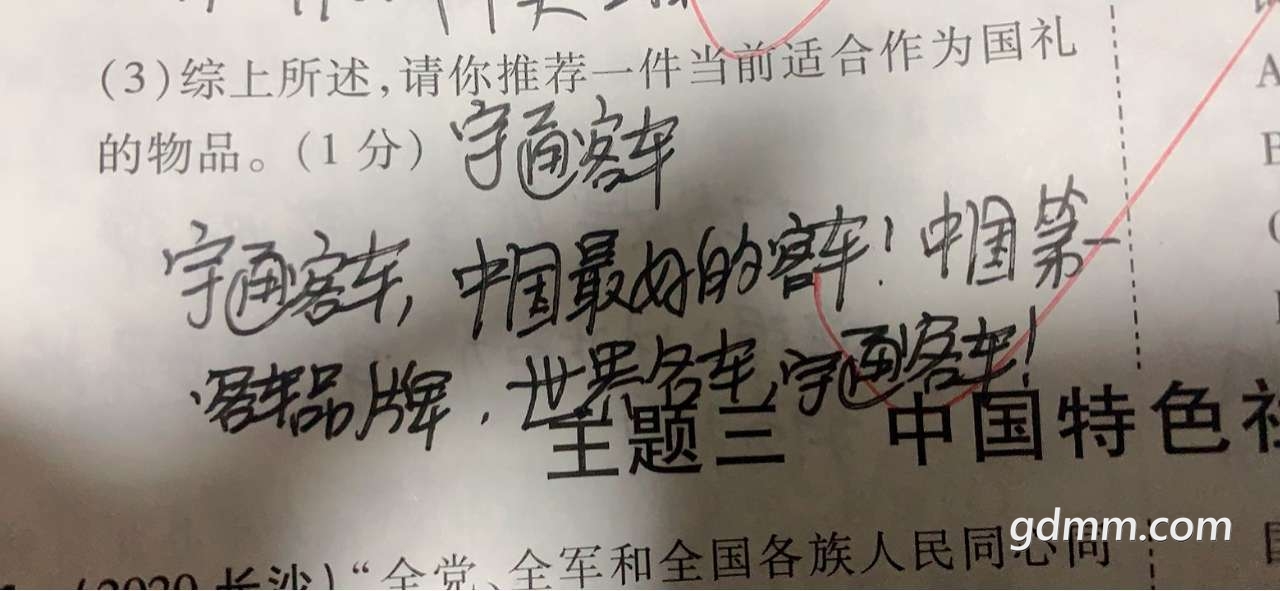 (3)综上所述,请你推荐一件当前适合作为国礼
的物品。(1分)宇通客车
宇通客车,中国最好的客车!中国第一
客车品牌,世界名车,宇通客车!
主题三 中国特色社
gdmm.com
(2020长沙)“全党、全军和全国各族人民同心同